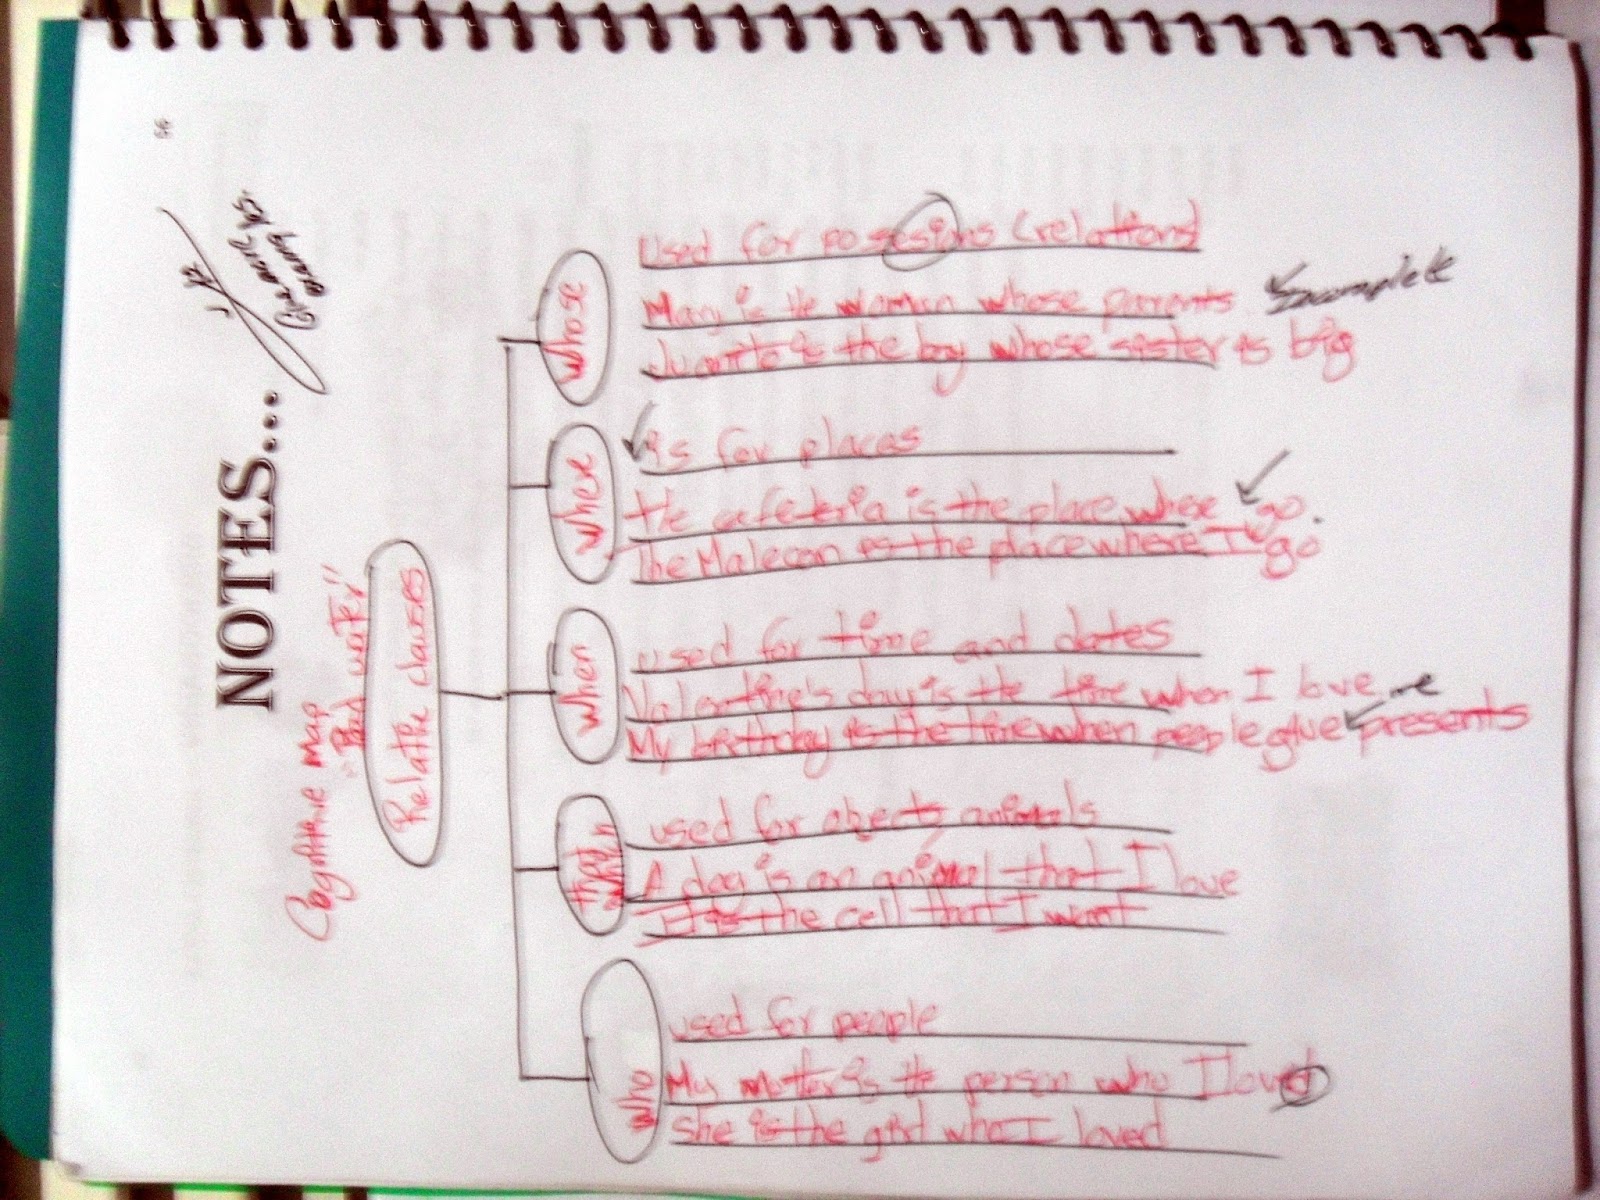 NOTES...
Cognitive map
"Bad water"
Relative clauses
whose
Used for posesions (relations)
Mary is the woman whose parrents
Incomplete
Juanito is the boy whose sister is big
where
is for places
the cafeteria is the place where go.
The Malecon is the place where I go
when
used for time and dates
Valentine's day is the time when I love
My birthday is the time when people give presents
me
that
which
used for objects animals
A dog is an animal that I love
It is the cell that I want
who
used for people
My mother is the person who I loved
she is the girl who I loved